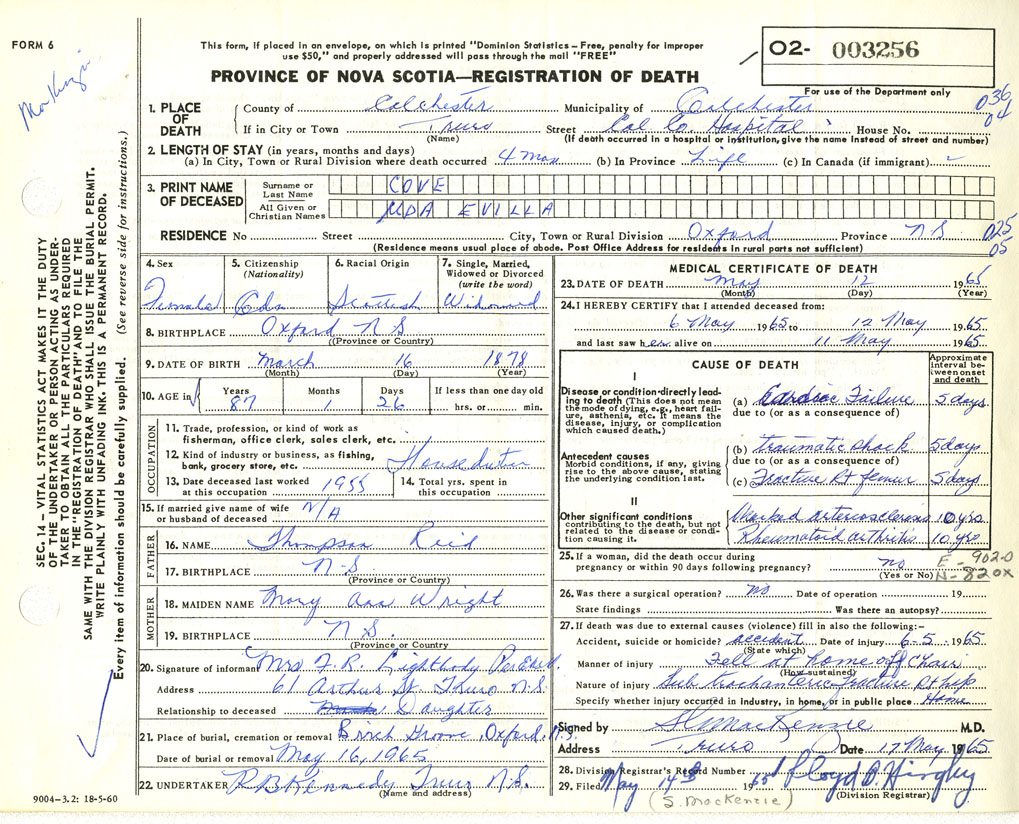 FORM 6
This form, if placed in an envelope, on which is printed "Dominion Statistics – Free, penalty for improper
use $50," and properly addressed will pass through the mail "FREE"
O2- 003256
For use of the Department only
PROVINCE OF NOVA SCOTIA—REGISTRATION OF DEATH
036
04
1. PLACE OF DEATH County of Colchester Municipality of Colchester
If in City or Town Truro Street Col. Co. Hospital House No.
(Name) (If death occurred in a hospital or institution, give the name instead of street and number)
2. LENGTH OF STAY (in years, months and days)
(a) In City, Town or Rural Division where death occurred 4 mos (b) In Province Life (c) In Canada (if immigrant)
3. PRINT NAME OF DECEASED Surname or Last Name COVE
All Given or Christian Names EVILLA
RESIDENCE No Street City, Town or Rural Division Oxford Province N S
025
05
(Residence means usual place of abode. Post Office Address for residents in rural parts not sufficient)
4. Sex 5. Citizenship (Nationality) 6. Racial Origin 7. Single, Married, Widowed or Divorced (write the word)
Female Cdn Scottish Widowed
8. BIRTHPLACE Oxford N S
(Province or Country)
9. DATE OF BIRTH March 16 1878
(Month) (Day) (Year)
10. AGE in Years 87 Months 1 Days 26 If less than one day old hrs. or min.
OCCUPATION
11. Trade, profession, or kind of work as fisherman, office clerk, sales clerk, etc.
12. Kind of industry or business, as fishing, bank, grocery store, etc. House duties
13. Date deceased last worked at this occupation 1955 14. Total yrs. spent in this occupation
15. If married give name of wife or husband of deceased N/A
FATHER
16. NAME Thompson Reid
17. BIRTHPLACE N-S
(Province or Country)
MOTHER
18. MAIDEN NAME Mary Ann Wright
19. BIRTHPLACE N S.
(Province or Country)
20. Signature of informant Mrs F. R. Lightbody
Address 61 Arthur St. Truro N.S.
Relationship to deceased Daughter
21. Place of burial, cremation or removal Birch Grove, Oxford, N.S.
Date of burial or removal May 16, 1965
22. UNDERTAKER R B Kennedy Truro N.S.
(Name and address)
9004-3.2: 18-5-60
MEDICAL CERTIFICATE OF DEATH
23. DATE OF DEATH May 12 1965
(Month) (Day) (Year)
24. I HEREBY CERTIFY that I attended deceased from:
6 May 1965 to 12 May 1965
and last saw her alive on 11 May 1965
CAUSE OF DEATH
Approximate interval between onset and death
I
Disease or condition directly leading to death (This does not mean the mode of dying, e.g., heart failure, asthenia, etc. It means the disease, injury, or complication which caused death.)
(a) Cardiac Failure 5 days
due to (or as a consequence of)
Antecedent causes
Morbid conditions, if any, giving rise to the above cause, stating the underlying condition last.
(b) traumatic shock 5 days
due to (or as a consequence of)
(c) Fracture Rt femur 5 days
II
Other significant conditions contributing to the death, but not related to the disease or condition causing it.
Marked arteriosclerosis 10 yrs
Rheumatoid arthritis 10 yrs
25. If a woman, did the death occur during pregnancy or within 90 days following pregnancy? no
(Yes or No)
E-902.0
N-820X
26. Was there a surgical operation? no Date of operation 19
State findings Was there an autopsy?
27. If death was due to external causes (violence) fill in also the following:-
Accident, suicide or homicide? accident Date of injury 6-5 1965
(State which)
Manner of injury Fell at home off chair
(How sustained)
Nature of injury Sub trochanteric fracture Rt hip
Specify whether injury occurred in industry, in home, or in public place Home
Signed by MacKenzie M.D.
Address Truro Date 17 May 1965
28. Division Registrar's Record Number
29. Filed May 1965 Floyd B. Hingley
(S. MacKenzie) (Division Registrar)
SEC. 14 – VITAL STATISTICS ACT MAKES IT THE DUTY
OF THE UNDERTAKER OR PERSON ACTING AS UNDER-
TAKER TO OBTAIN ALL THE PARTICULARS REQUIRED
IN THE "REGISTRATION OF DEATH" AND TO FILE THE
SAME WITH THE DIVISION REGISTRAR WHO SHALL ISSUE THE BURIAL PERMIT.
WRITE PLAINLY WITH UNFADING INK. THIS IS A PERMANENT RECORD.
Every item of information should be carefully supplied. (See reverse side for instructions.)